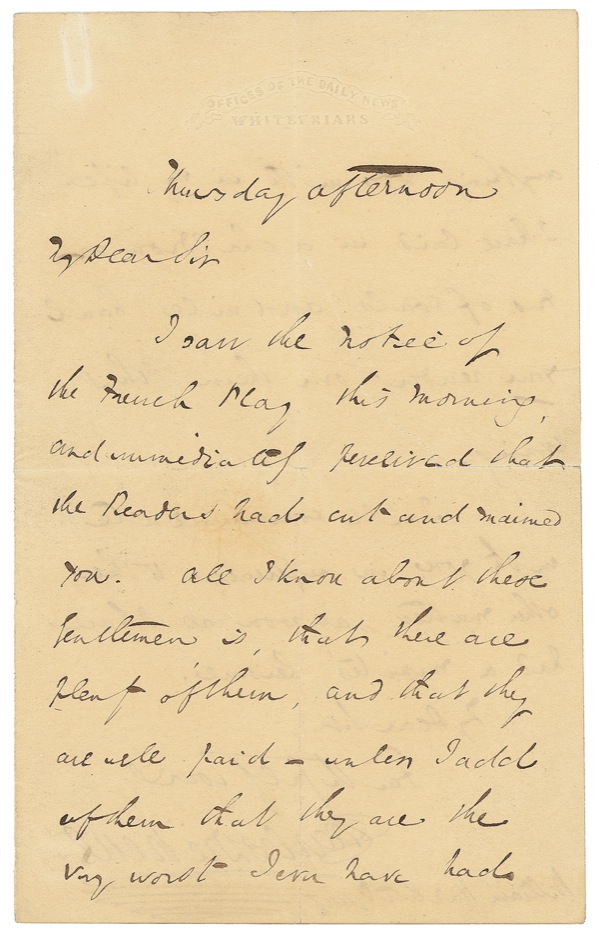 OFFICES OF THE DAILY NEWS
WHITEFRIARS
Thursday afternoon
My Dear Sir
I saw the notice of
the French Play this morning,
and immediately perceived that
the Readers had cut and maimed
you. All I know about these
gentlemen is, that there are
plenty of them, and that they
are well paid – unless I add
of them that they are the
very worst I ever have had